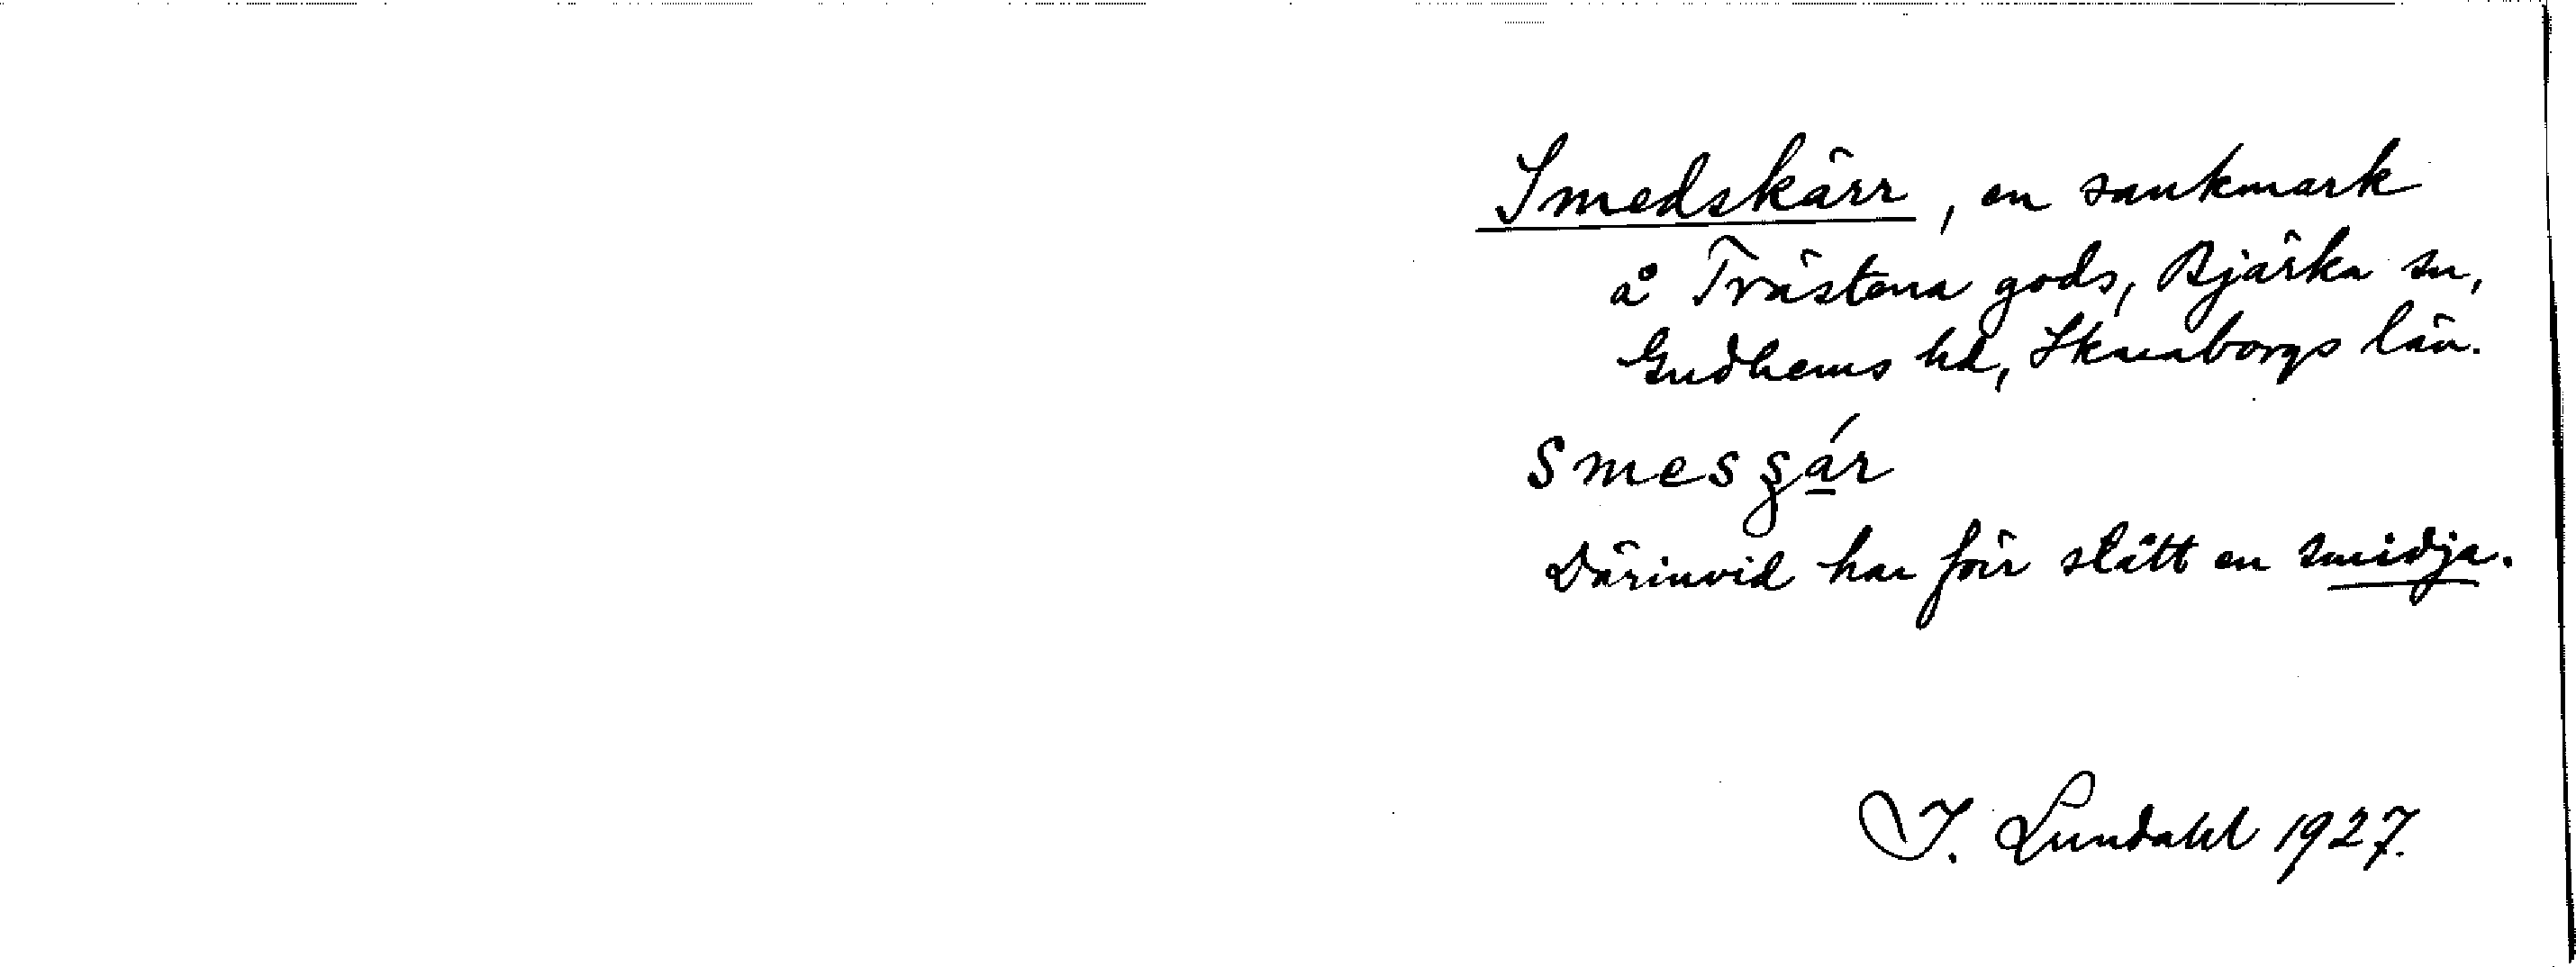 Smedskärr, en sankmark
å Trästena gods, Bjärka sn,
Gudhems hd, Skaraborgs län.
Därinvid har förr stått en smidja.
I. Lundahl 1927.